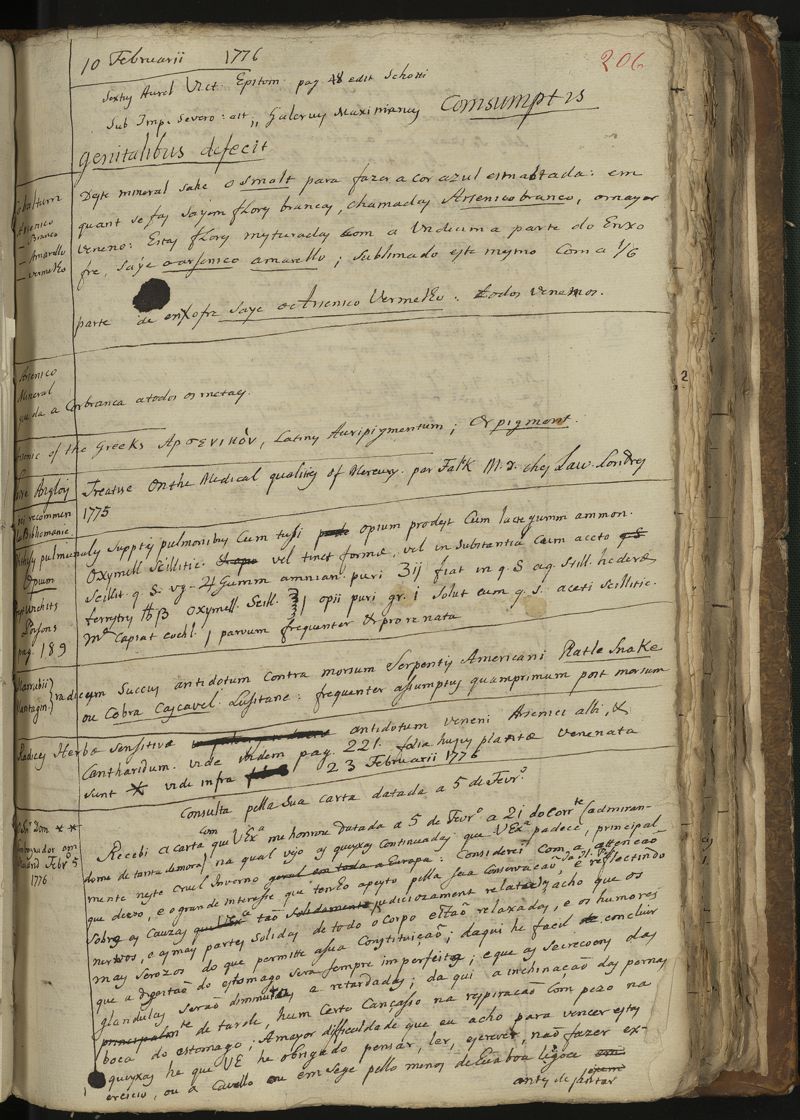 206
10 Februarii 1776
Sextus Aurel Vict. Epitom. pag 48 edit Schotti
Sub Imp. Severo: ait,, Galerius Maximianus Consumptis
genitalibus defecit
Cobaltum
Arsenico
Branco
— Amarello
— Vermelho
Deste mineral sahe o smalt para fazer a cor azul esmaltada: em
quant se fas sayem flores brancas, chamadas Arsenico branco, o mayor
veneno: Estas flores mysturadas com a Undicima parte do Enxo
fre, saye o arsenico amarello; sublimado este mesmo com a 1/6
parte de enxofre saye oc Arsenico Vermelho: todos venenos.
Arsenico
Mineral
que da a Cor branca a todos os metaes.
of the Greeks Αρσενικὸν, Latins Auripigmentum; Orpigment.
Treatise On the Medical qualities of Mercury. par Falk M.D. ches Law. Londres
1775
recommen
Bibliomanie
pulmonaly suppsis pulmonibus Cum tussi opium prodest Cum lacte gumm ammon.
Opium
Oxymell Scillitic. vel tinct formæ, vel in substantia cum aceto
Scillit. q. S. vg - ℞ Gumm ammian. puri ʒij fiat in q. S aq. still. hederæ
Poisons
terrestris ℔β Oxymell. Scill. ℥j opii puri gr. i solut cum q. s. aceti scillitic.
pag. 189
Mr Capiat cochl. j parvum frequenter & pro re nata
Marrubii
Plantagin. } radicum Succus antidotum contra morsum Serpentis Americani Ratle Snake
ou Cobra Cascavel Lusitane: frequenter assumptus quamprimum post morsum
Radices Herbæ Sensitivæ antidotum veneni Arsenici albi, &
Cantharidum. vide ibidem pag. 221. folia hujus plantæ venenata
sunt vide infra 23 Februarii 1776
Consulta pella sua carta datada a 5 de Fevrº
Dom * *
Madrid Febrº 5
1776
Recebi a carta com que VExª me honrou datada a 5 de Fevrº a 21 do Corrte (admiran-
dome de tanta demora) na qual vejo as queyxas continuadas que VExª padece, principal
mente neste cruel Inverno geral em toda a Europa: Considerei com a attencaõ
que devo, e o grande interesse que tenho a peyto pella sua conservacaõ, e reflectindo
sobre as Cauzas que VExª taõ solidamente judiciozament relata, acho que os
nervos, e as mais partes solidas de todo o Corpo estaõ relaxadas, e os humores
mays serozos do que permitte a sua Constituiçaõ; daqui he facil de concluir
que a digestaõ do estomago sera sempre imperfeita, e que as secrecoens das
glandulas seraõ diminutas, a retardadas; da qui a inchinaçaõ das pernas
principalmte de tarde, hum certo Cançasso na respiracaõ com pezo na
boca do estomago; A mayor difficuldade que eu acho para vencer estas
queyxas he que VE he obrigado pensar, ler, escrever, naõ fazer ex-
ercicio, ou a Cavello ou em sege pello menos de hua boa legoa
antes de jantar